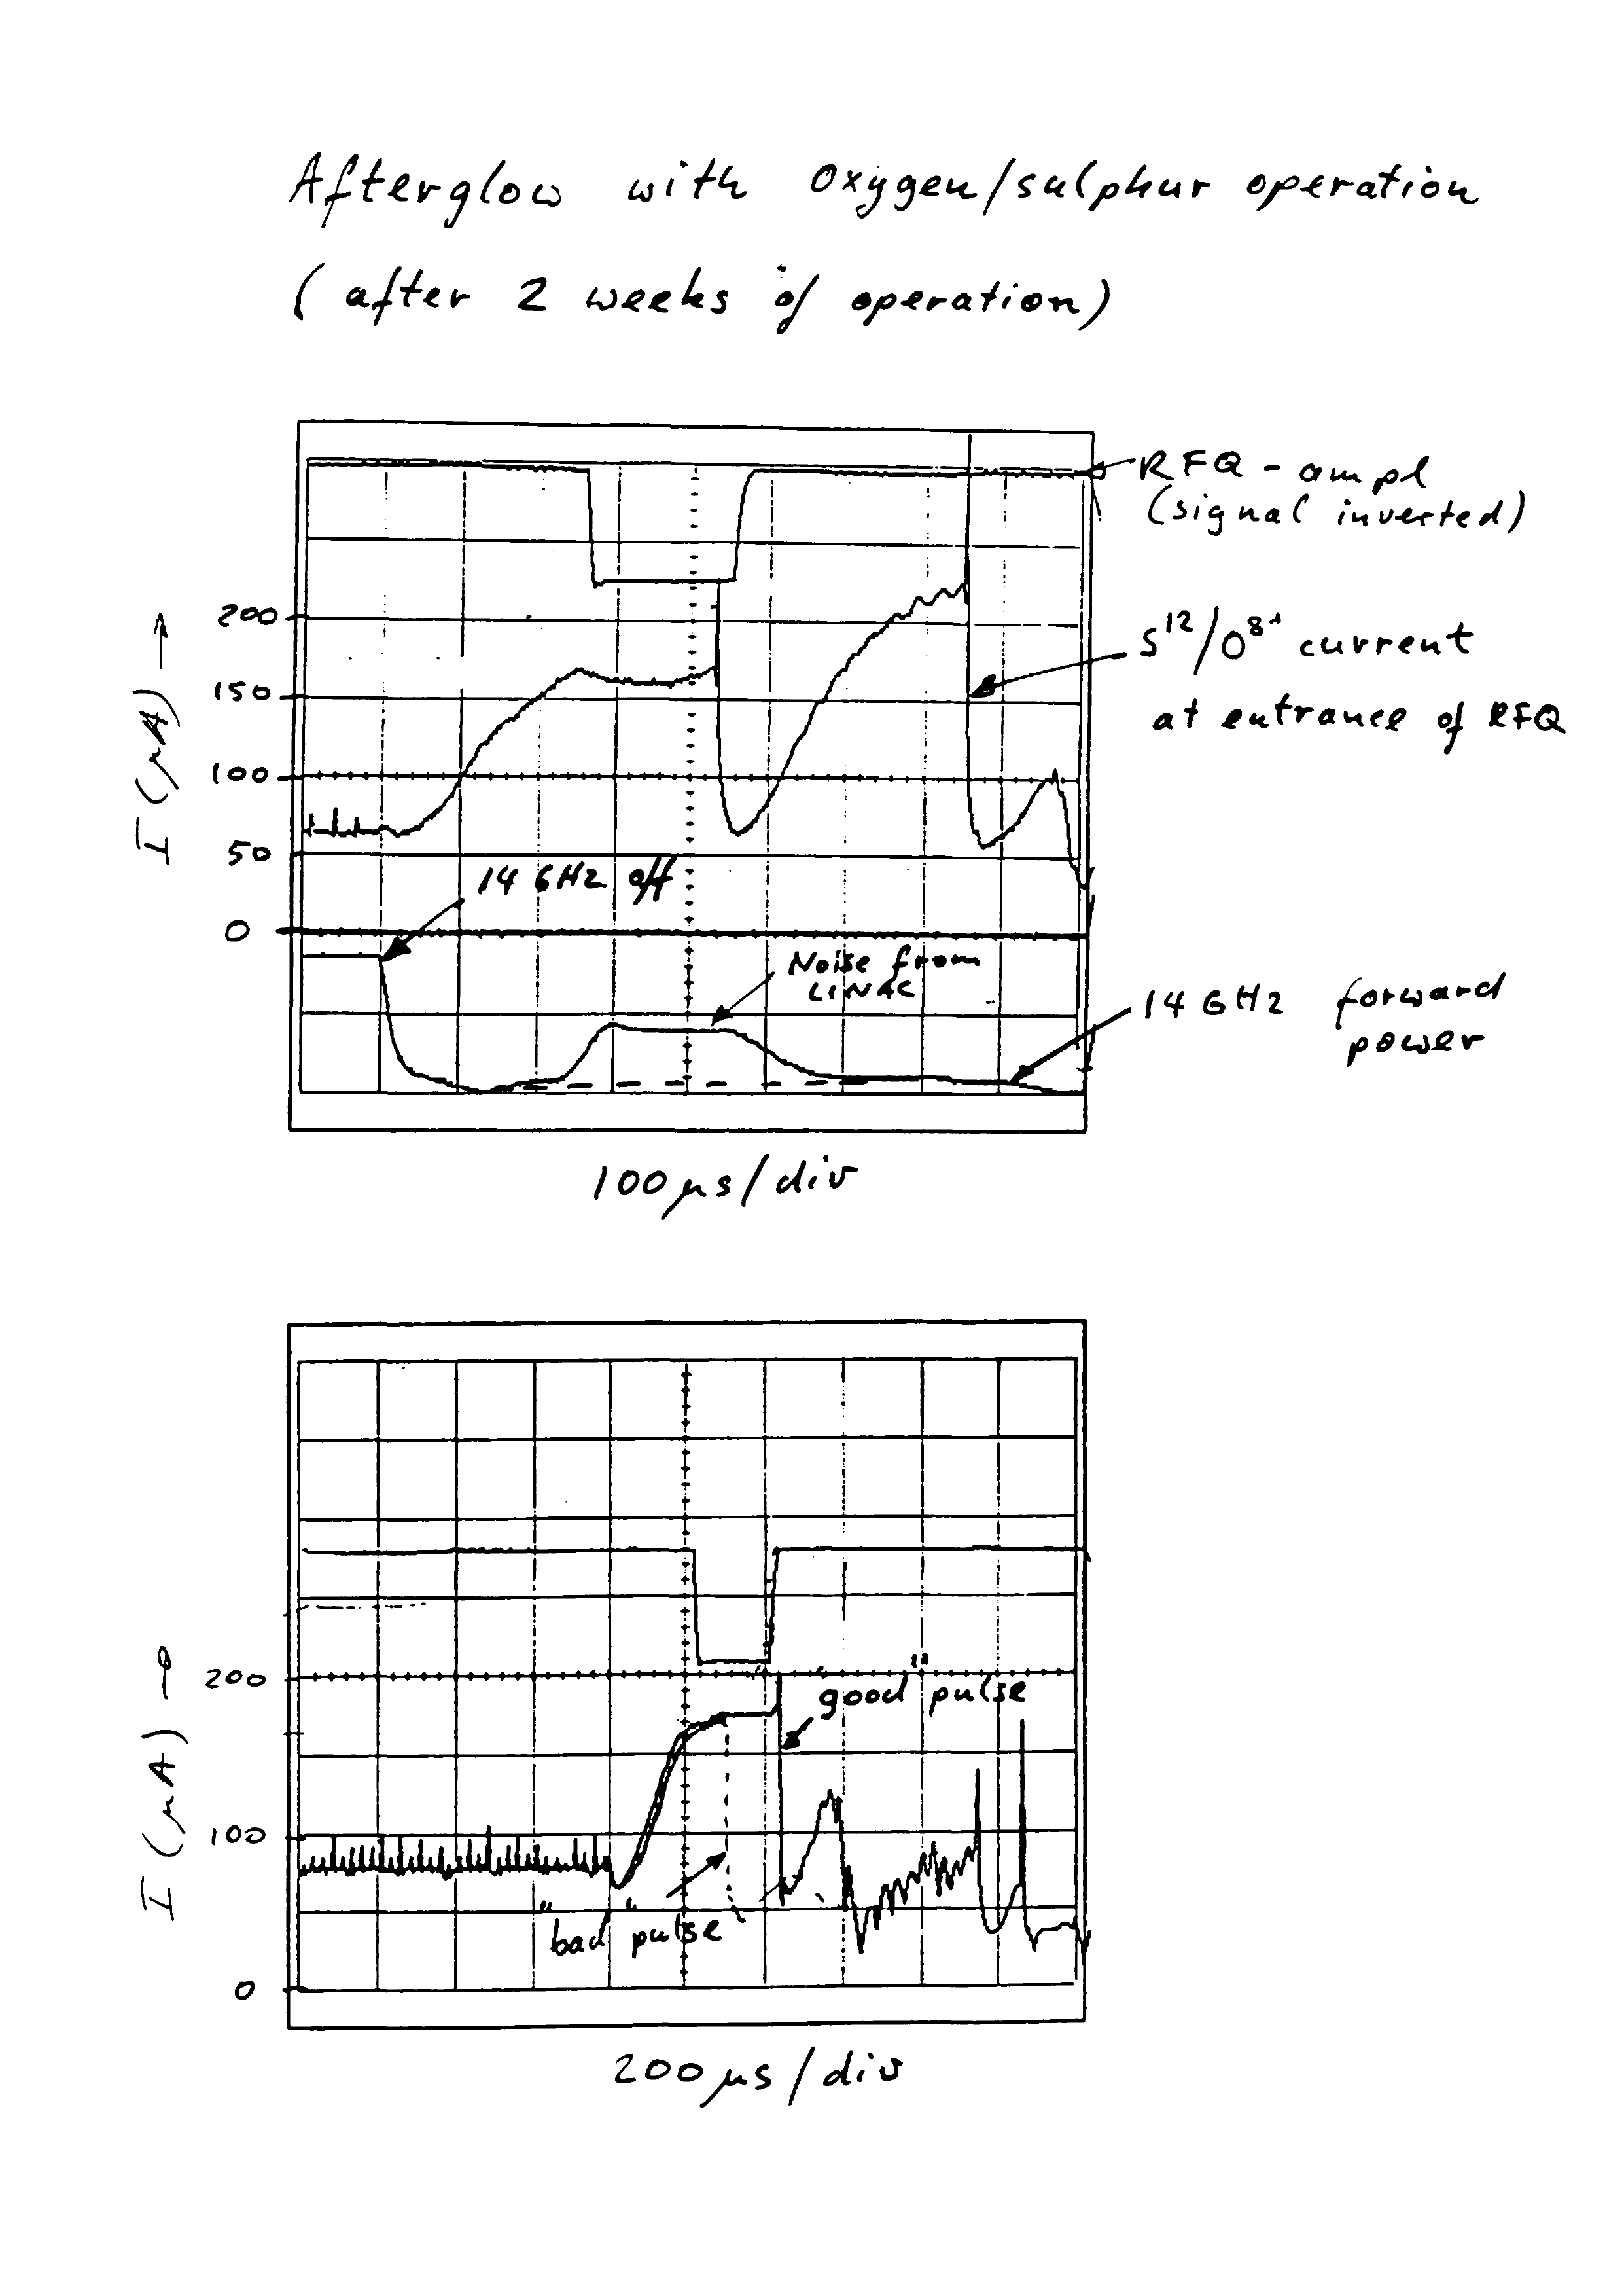 Afterglow with Oxygen/sulphur operation
(after 2 weeks of operation)
RFQ - ampl
(signal inverted)
I (μA) →
200
150
100
50
0
S¹²/O⁸⁺ current
at entrance of RFQ
14 GHz off
Noise from
LINAC
14 GHz forward
power
100 μs/div
I (μA) →
200
100
0
"good" pulse
"bad" pulse
200 μs/div